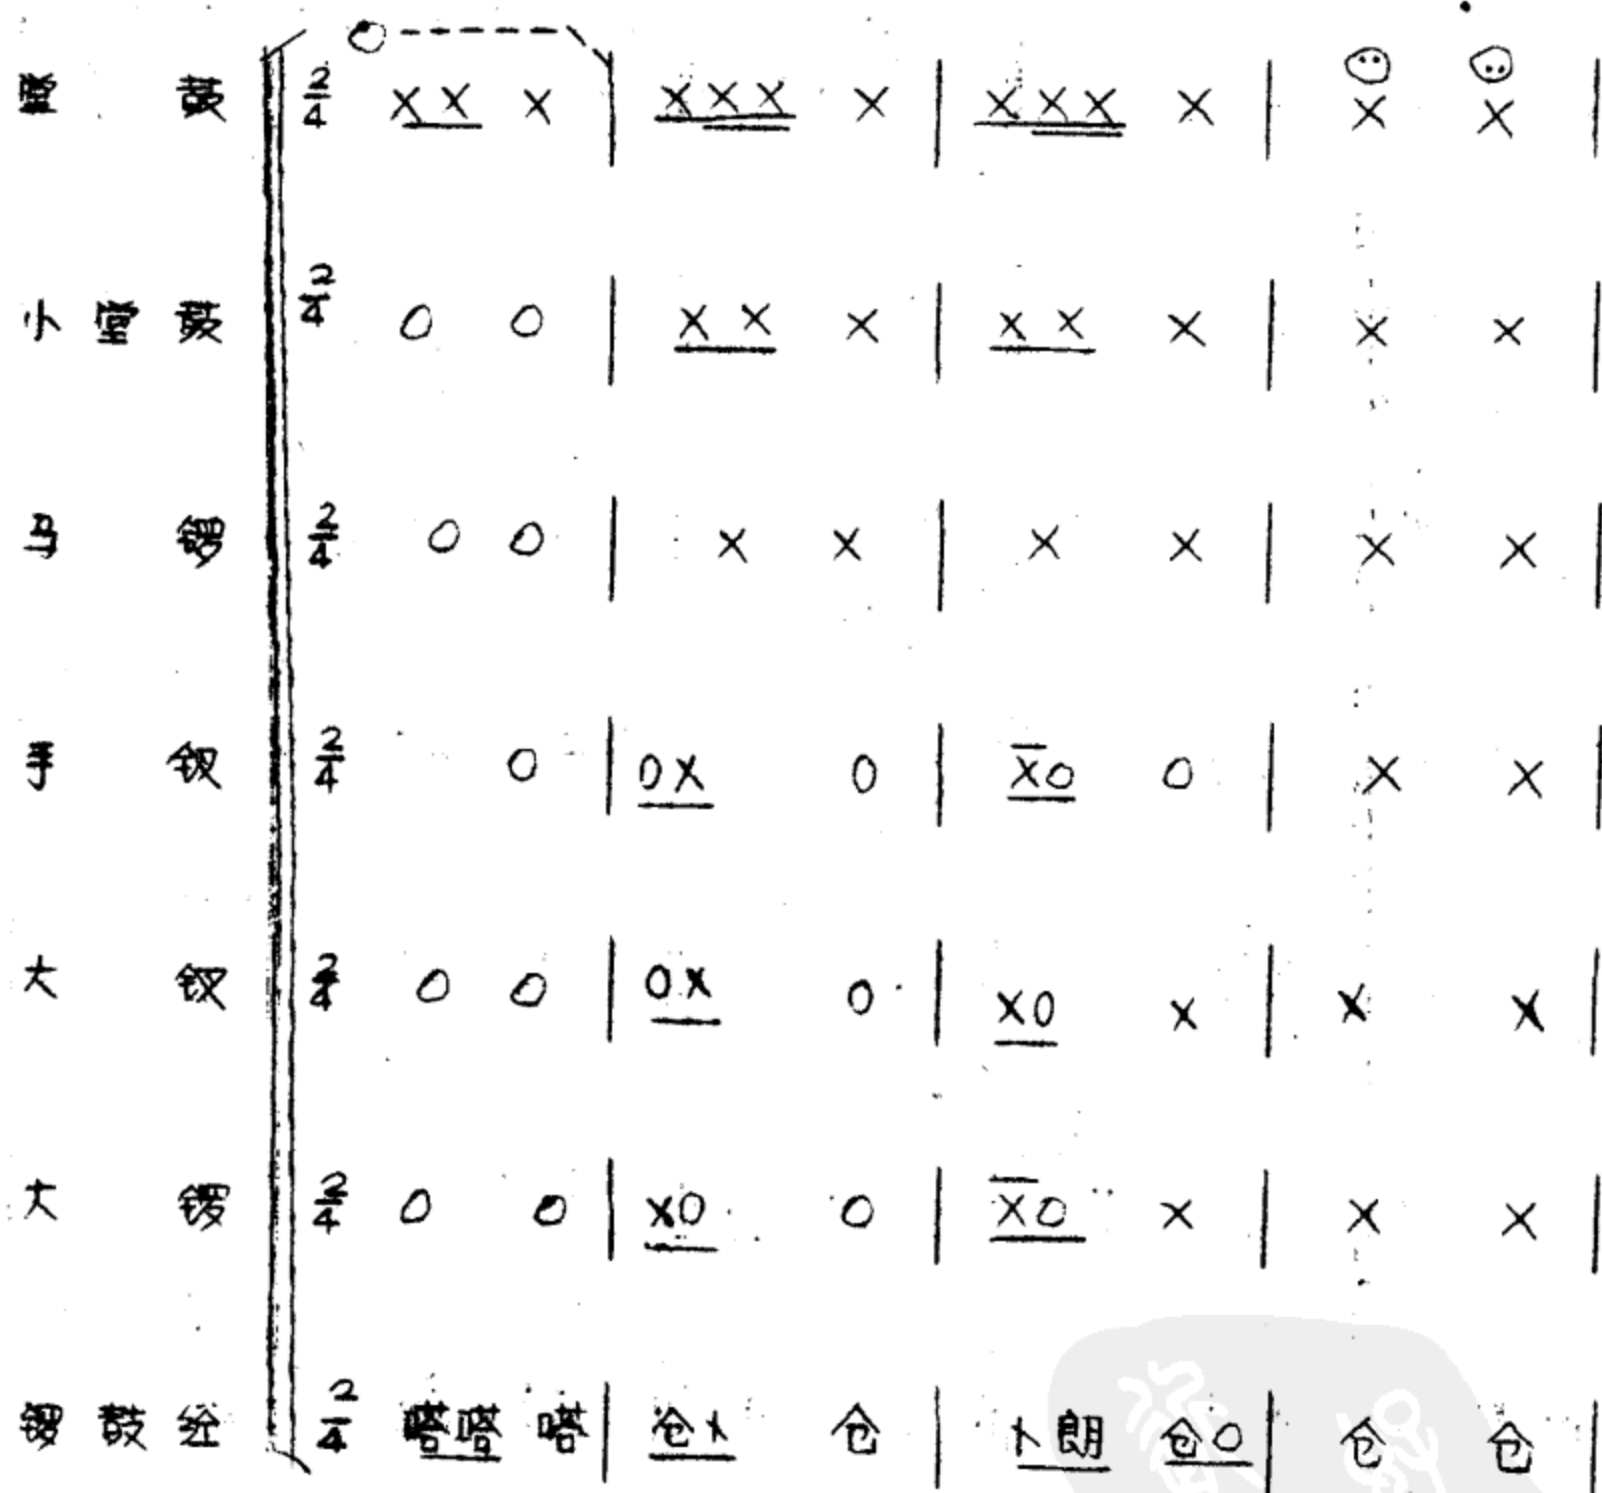 堂 鼓 2/4 X X X | X X X X | X X X X | X X |
小 堂 鼓 2/4 0 0 | X X X | X X X | X X |
马 锣 2/4 0 0 | X X | X X | X X |
手 钗 2/4 0 | 0X 0 | X0 0 | X X |
大 钗 2/4 0 0 | 0X 0 | X0 X | X X |
大 锣 2/4 0 0 | X0 0 | X0 X | X X |
锣 鼓 经 2/4 嗒嗒 嗒 | 仓卜 仓 | 卜朗 仓0 | 仓 仓 |